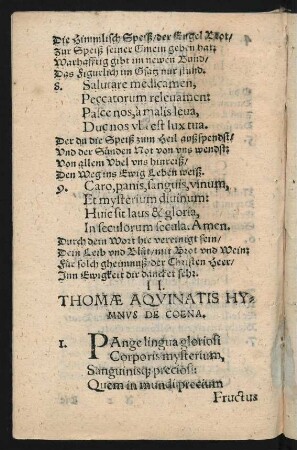 Die Himmlisch Speiß/der Engel Brot/
Zur Speiß seiner Gmein geben hat/
Warhafftig gibt im newen Bund/
Das Figurlich im Gsatz nur stund.
8. Salutare medicamen,
Peccatorum releuamen:
Pasce nos, à malis leua,
Duc nos vbi est lux tua.
Der du die Speiß zum Heil außspendst/
Und der Sünden Not von vns wendst:
Von allem Vbel vns hinreiß/
Den Weg ins Ewig Leben weiß.
9. Caro, panis, sanguis, vinum,
Et mysterium diuinum:
Huic sit laus & gloria,
In seculorum secula. Amen.
Durch dein Wort hie vereinigt sein/
Dein Leib vnd Blůt/mit Brot vnd Wein:
Für solch gheimnuß der Christen Heer/
Inn Ewigkeit dir dancket sehr.
II.
THOMÆ AQVINATIS HY-
MNVS DE COENA.
1. PAnge lingua gloriosi
Corporis mysterium,
Sanguinisq; preciosi:
Quem in mundi precium
Fructus